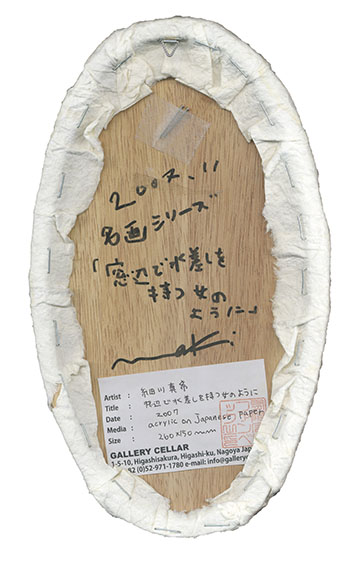 2007.11
名画シリーズ
「窓辺で水差しを
持つ女の
ように」
maki
Artist : 細川真希
Title : 窓辺で水差しを持つ女のように
Date : 2007
Media : acrylic on Japanese paper
Size : 260×150mm
GALLERY CELLAR
1-5-10, Higashisakura, Higashi-ku, Nagoya Jap
82 (0)52-971-1780 e-mail: info@gallery